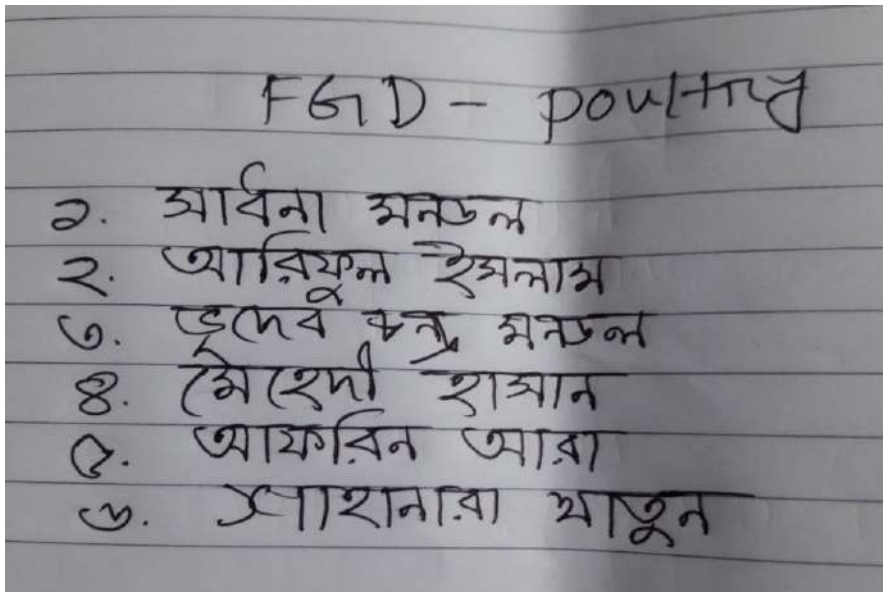 FGD - poultry
১. সাধনা মনডল
২. আরিফুল ইসলাম
৩. ভূদেব চন্দ্র মনডল
৪. মেহেদী হাসান
৫. আফরিন আরা
৬. শাহানারা খাতুন